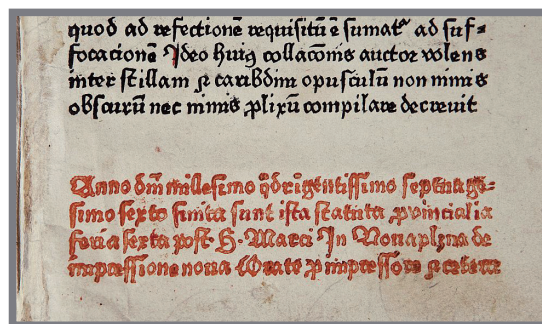 quod ad refectionē requisitū ē sumat᷑ ad suf⸗
focacionē Ideo huiꝰ collacōnis auctor volens
inter scillam ⁊ caribdim opusculū non nimis
obscurū nec nimis ꝓlixū compilare decreuit
Anno dm̄ millesimo q̄dringentissimo septuage⸗
simo sexto finita sunt ista statuta ꝓuincialia
feria sexta post S. Marci In Nouaplzna de
impressione noua Orate ꝓ impressore ⁊